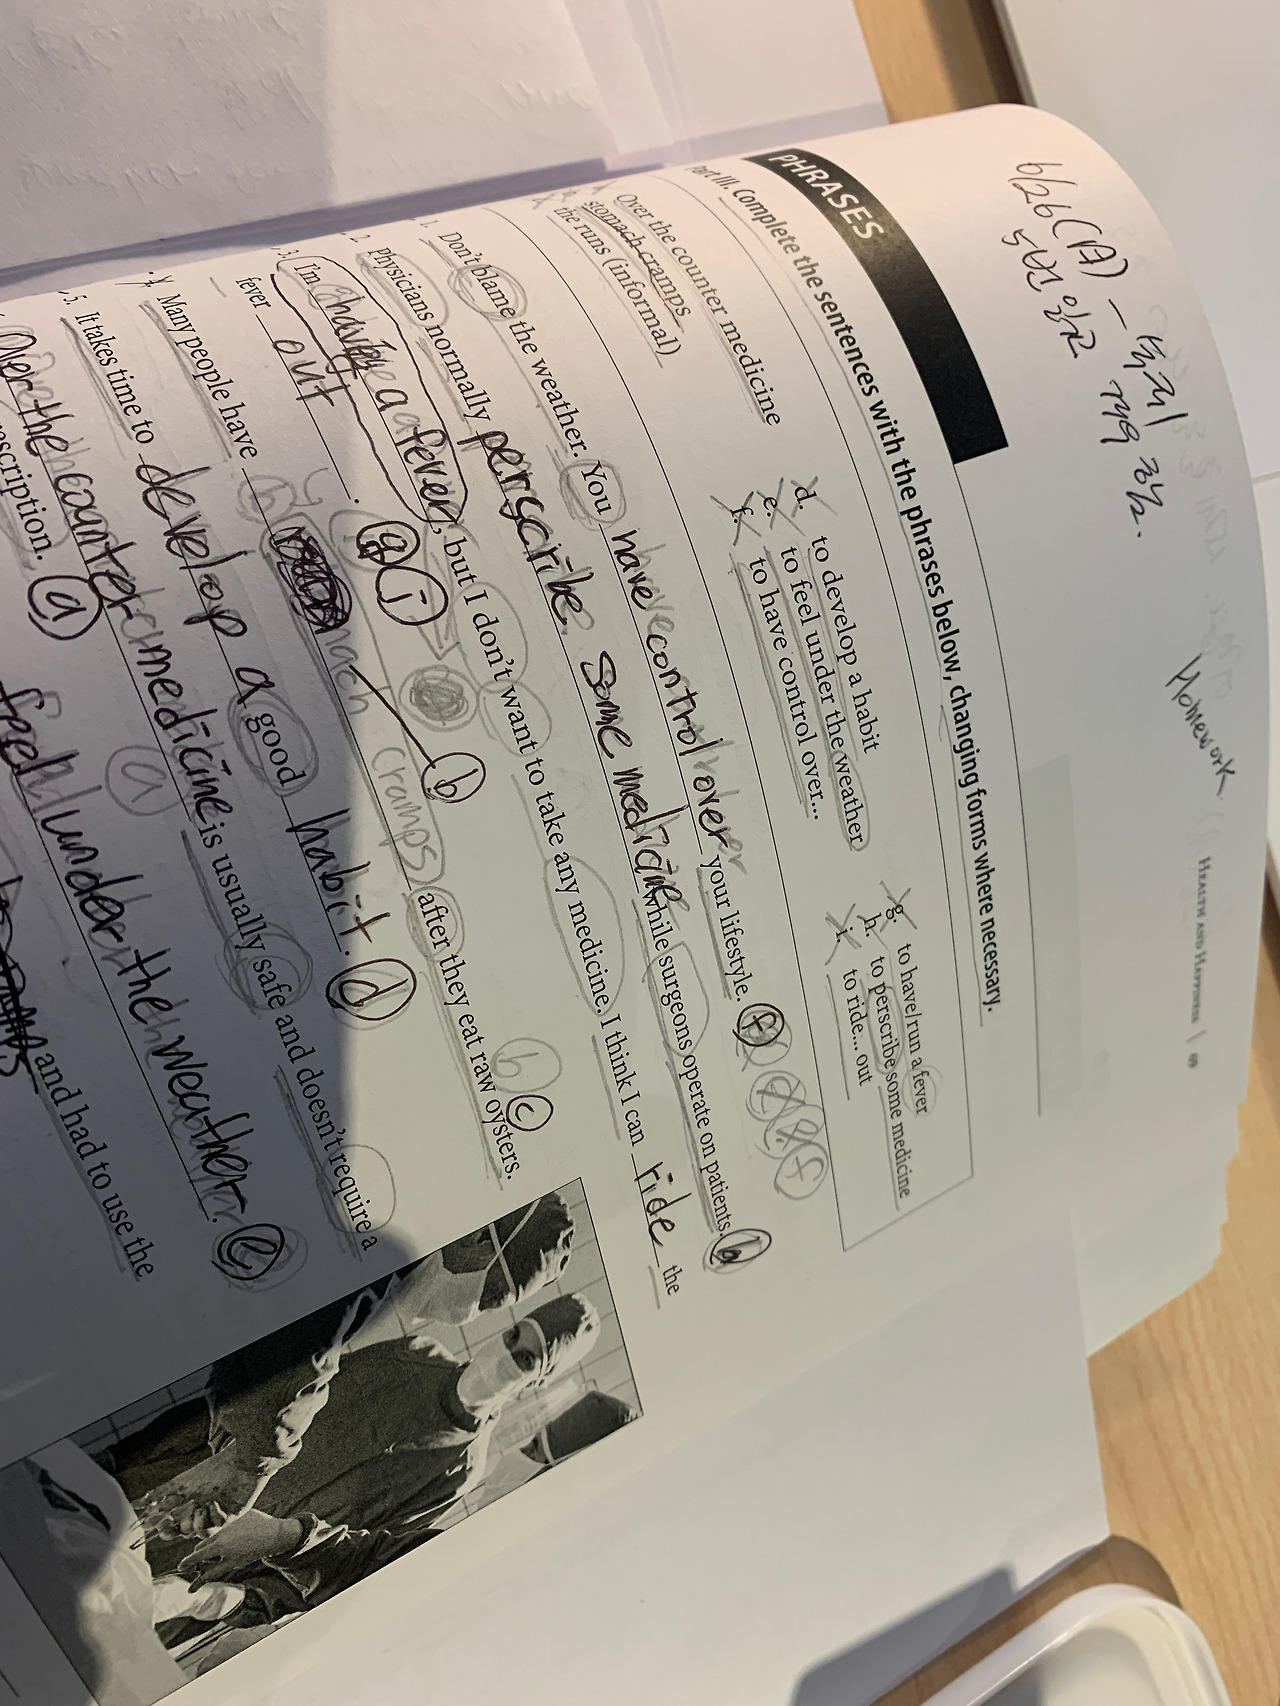 6/26 (A) –
5번 앞으로
Homework
HEALTH AND HAPPINESS | 69
PHRASES
Part III. Complete the sentences with the phrases below, changing forms where necessary.
Over the counter medicine
stomach cramps
the runs (informal)
d. to develop a habit
e. to feel under the weather
f. to have control over...
g. to have/run a fever
h. to perscribe some medicine
i. to ride... out
1. Don't blame the weather. You have control over your lifestyle. f
2. Physicians normally perscribe some medicine while surgeons operate on patients. h
3. I'm having a fever, but I don't want to take any medicine. I think I can ride the
fever out. g i
4. Many people have cramps after they eat raw oysters. b c
5. It takes time to develop a good habit. d
Over the counter medicine is usually safe and doesn't require a
prescription. a
feel under the weather. e
and had to use the